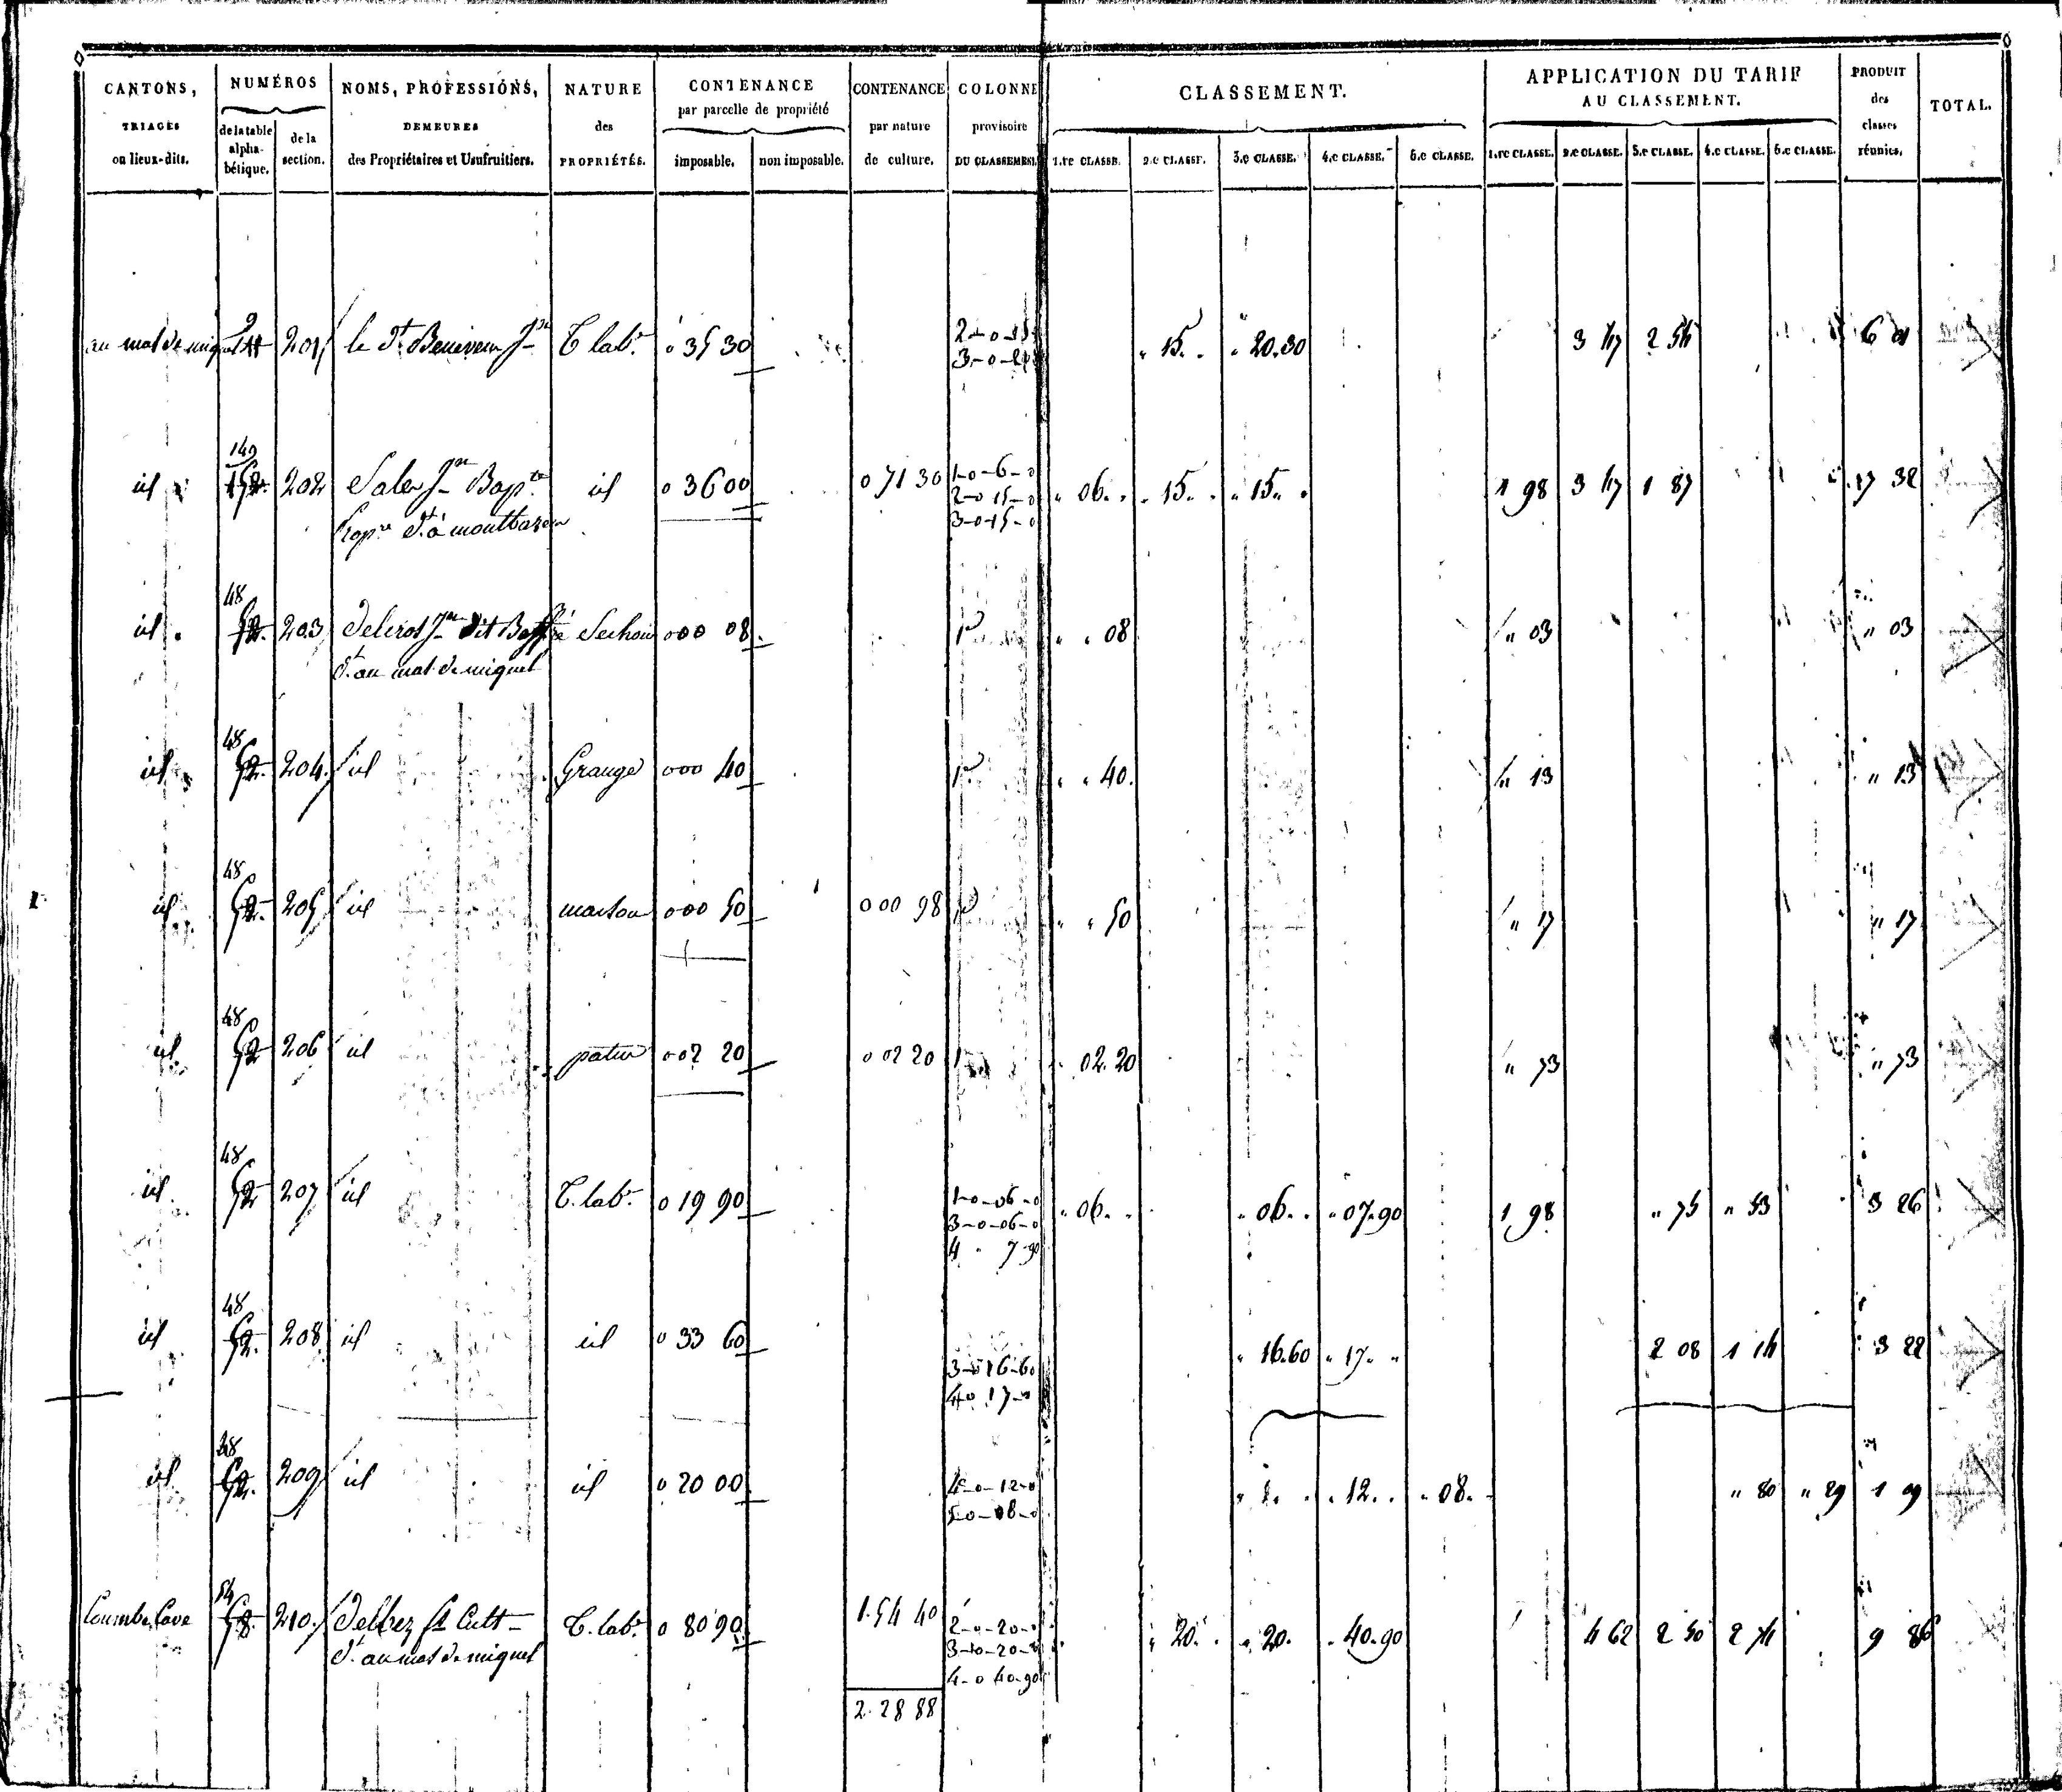 CANTONS, TRIAGES ou lieux-dits.
NUMÉROS de la table alphabétique. de la section.
NOMS, PROFESSIONS, DEMEURES des Propriétaires et Usufruitiers.
NATURE des PROPRIÉTÉS.
CONTENANCE par parcelle de propriété imposable. non imposable.
CONTENANCE par nature de culture.
COLONNE provisoire DU CLASSEMENT.
CLASSEMENT.
1.re CLASSE. 2.e CLASSE. 3.e CLASSE. 4.e CLASSE. 5.e CLASSE.
APPLICATION DU TARIF AU CLASSEMENT.
1.re CLASSE. 2.e CLASSE. 3.e CLASSE. 4.e CLASSE. 5.e CLASSE.
PRODUIT des classes réunies.
TOTAL.
au mat de miquel 9 201 le dt. T. labe. 0 35 30 2-0-15 3-0-20 " 15. . " 20.30 3 47 2 54 6 01
id 149 202 id 0 36 00 0 71 30 1-0-6-0 " 06. . " 15. . " 15. . 1 98 3 47 1 87 7 32
2-0 15-0
propre dt. à montbazen 3-0-15-0
id. 48 52. 203 Jn dit 000 08 1re " " 08 " 03 " 03
dt. au mat de miquel
id 48 52. 204 id Grange 000 40 1re " " 40. " 13 " 13
id 48 52. 205 id maison 000 50 0 00 98 " " 50 " 17 " 17
id 48 52 206 id patur 0 02 20 0 02 20 1 " 02.20 " 73 " 73
id 48 52 207 id T. labe. 0 19 90 1-0-06-0 " 06. . " 06. . " 07.90 1 98 " 75 " 53 3 26
3-0-06-0
4 " 7 90
id 48 52. 208 id id 0 33 60 " 16.60 " 17. " 2 08 1 14 3 22
3-0 16-60
4 0 17-0
id 48 52. 209 id id 0 20 00 4-0-12-0 " 12. . " 08. " 80 " 29 1 09
5-0-08-0
Coumbe Cave 54 58. 210 Delbez T. labe. 0 80 90 1. 54 40 2-0-20-0 " 20. . " 20. " 40.90 4 62 2 50 2 74 9 86
dt. au mat de miquel 3-0-20-0
4-0 40-90
2. 28 88